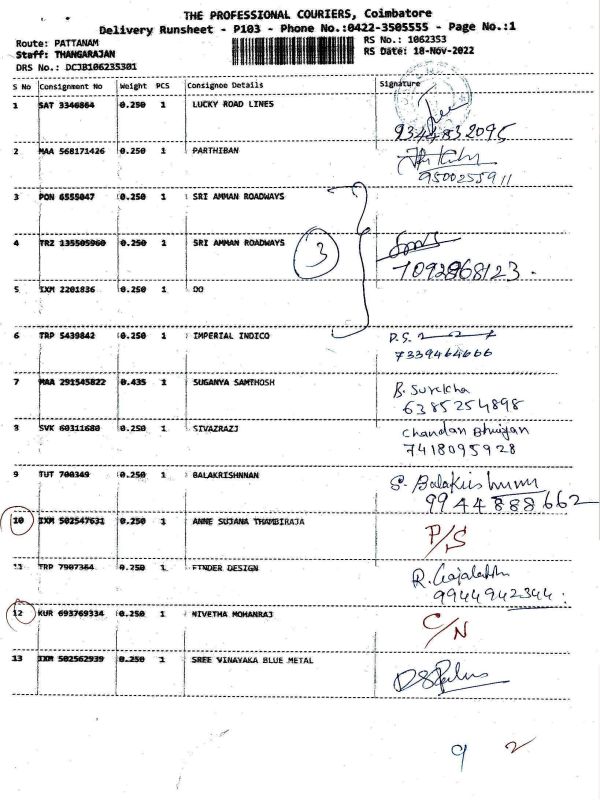 THE PROFESSIONAL COURIERS, Coimbatore
Delivery Runsheet - P103 - Phone No.:0422-3505555 - Page No.:1
Route: PATTANAM
RS No.: 1062353
Staff: THANGARAJAN
RS Date: 18-Nov-2022
DRS No.: DCJB106235301
S No Consignment No Weight PCS Consignee Details Signature
1 SAT 3346864 0.250 1 LUCKY ROAD LINES
9344832095
2 MAA 568171426 0.250 1 PARTHIBAN
9500255911
3 PON 6555047 0.250 1 SRI AMMAN ROADWAYS
4 TRZ 135505960 0.250 1 SRI AMMAN ROADWAYS 3
7092868123.
5 IXM 2201836 0.250 1 DO
6 TRP 5439842 0.250 1 IMPERIAL INDICO P.S.
7339464666
7 MAA 291545822 0.435 1 SUGANYA SAMTHOSH B. Surekha
6385254898
8 SVK 60311680 0.250 1 SIVAZRAZJ Chandan Bhuiyan
7418095928
9 TUT 700349 0.250 1 BALAKRISHNNAN S. Balakrishnan
9944888662
10 IXM 502547631 0.250 1 ANNE SUJANA THAMBIRAJA P/S
11 TRP 7907364 0.250 1 FINDER DESIGN R. Gajalakshmi
9944942344.
12 KUR 693769334 0.250 1 NIVETHA MOHANRAJ C/N
13 IXM 502562939 0.250 1 SREE VINAYAKA BLUE METAL
9 2